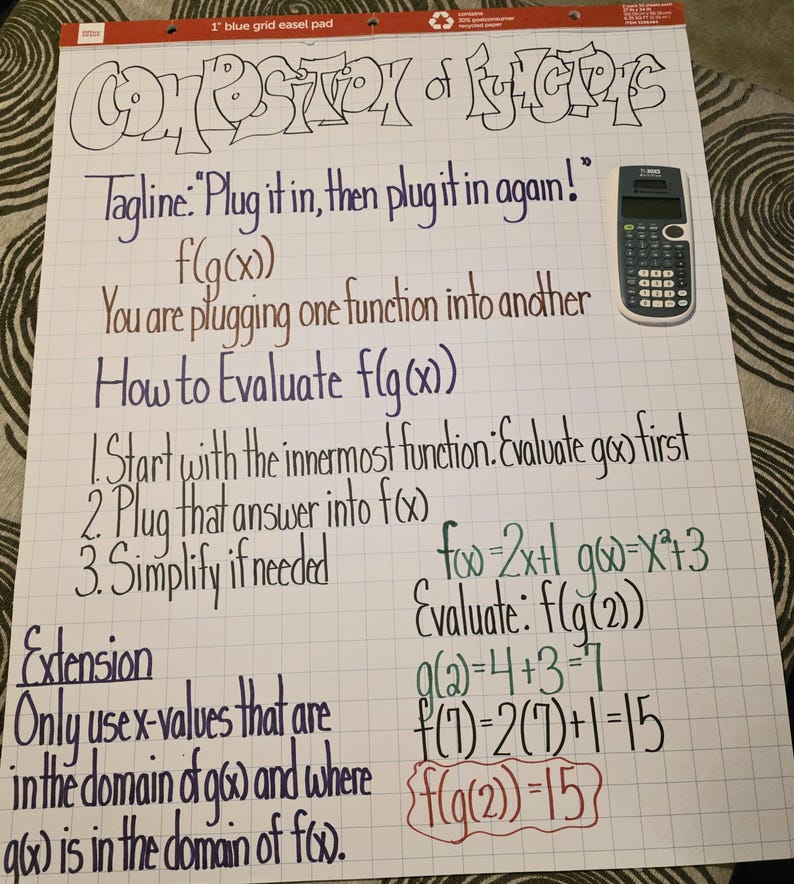 Office DEPOT
1" blue grid easel pad
contains
30% postconsumer
recycled paper
27 IN x 34 IN
ITEM 3256464
COMPOSITION of FUNCTIONS
Tagline: "Plug it in, then plug it in again!"
TI-30XS
MultiView
f(g(x))
You are plugging one function into another
How to Evaluate f(g(x))
1. Start with the innermost function: Evaluate g(x) first
2. Plug that answer into f(x)
3. Simplify if needed
f(x)=2x+1 g(x)=x²+3
Evaluate: f(g(2))
g(2)=4+3=7
f(7)=2(7)+1=15
f(g(2))=15
Extension
Only use x-values that are
in the domain of g(x) and where
g(x) is in the domain of f(x).